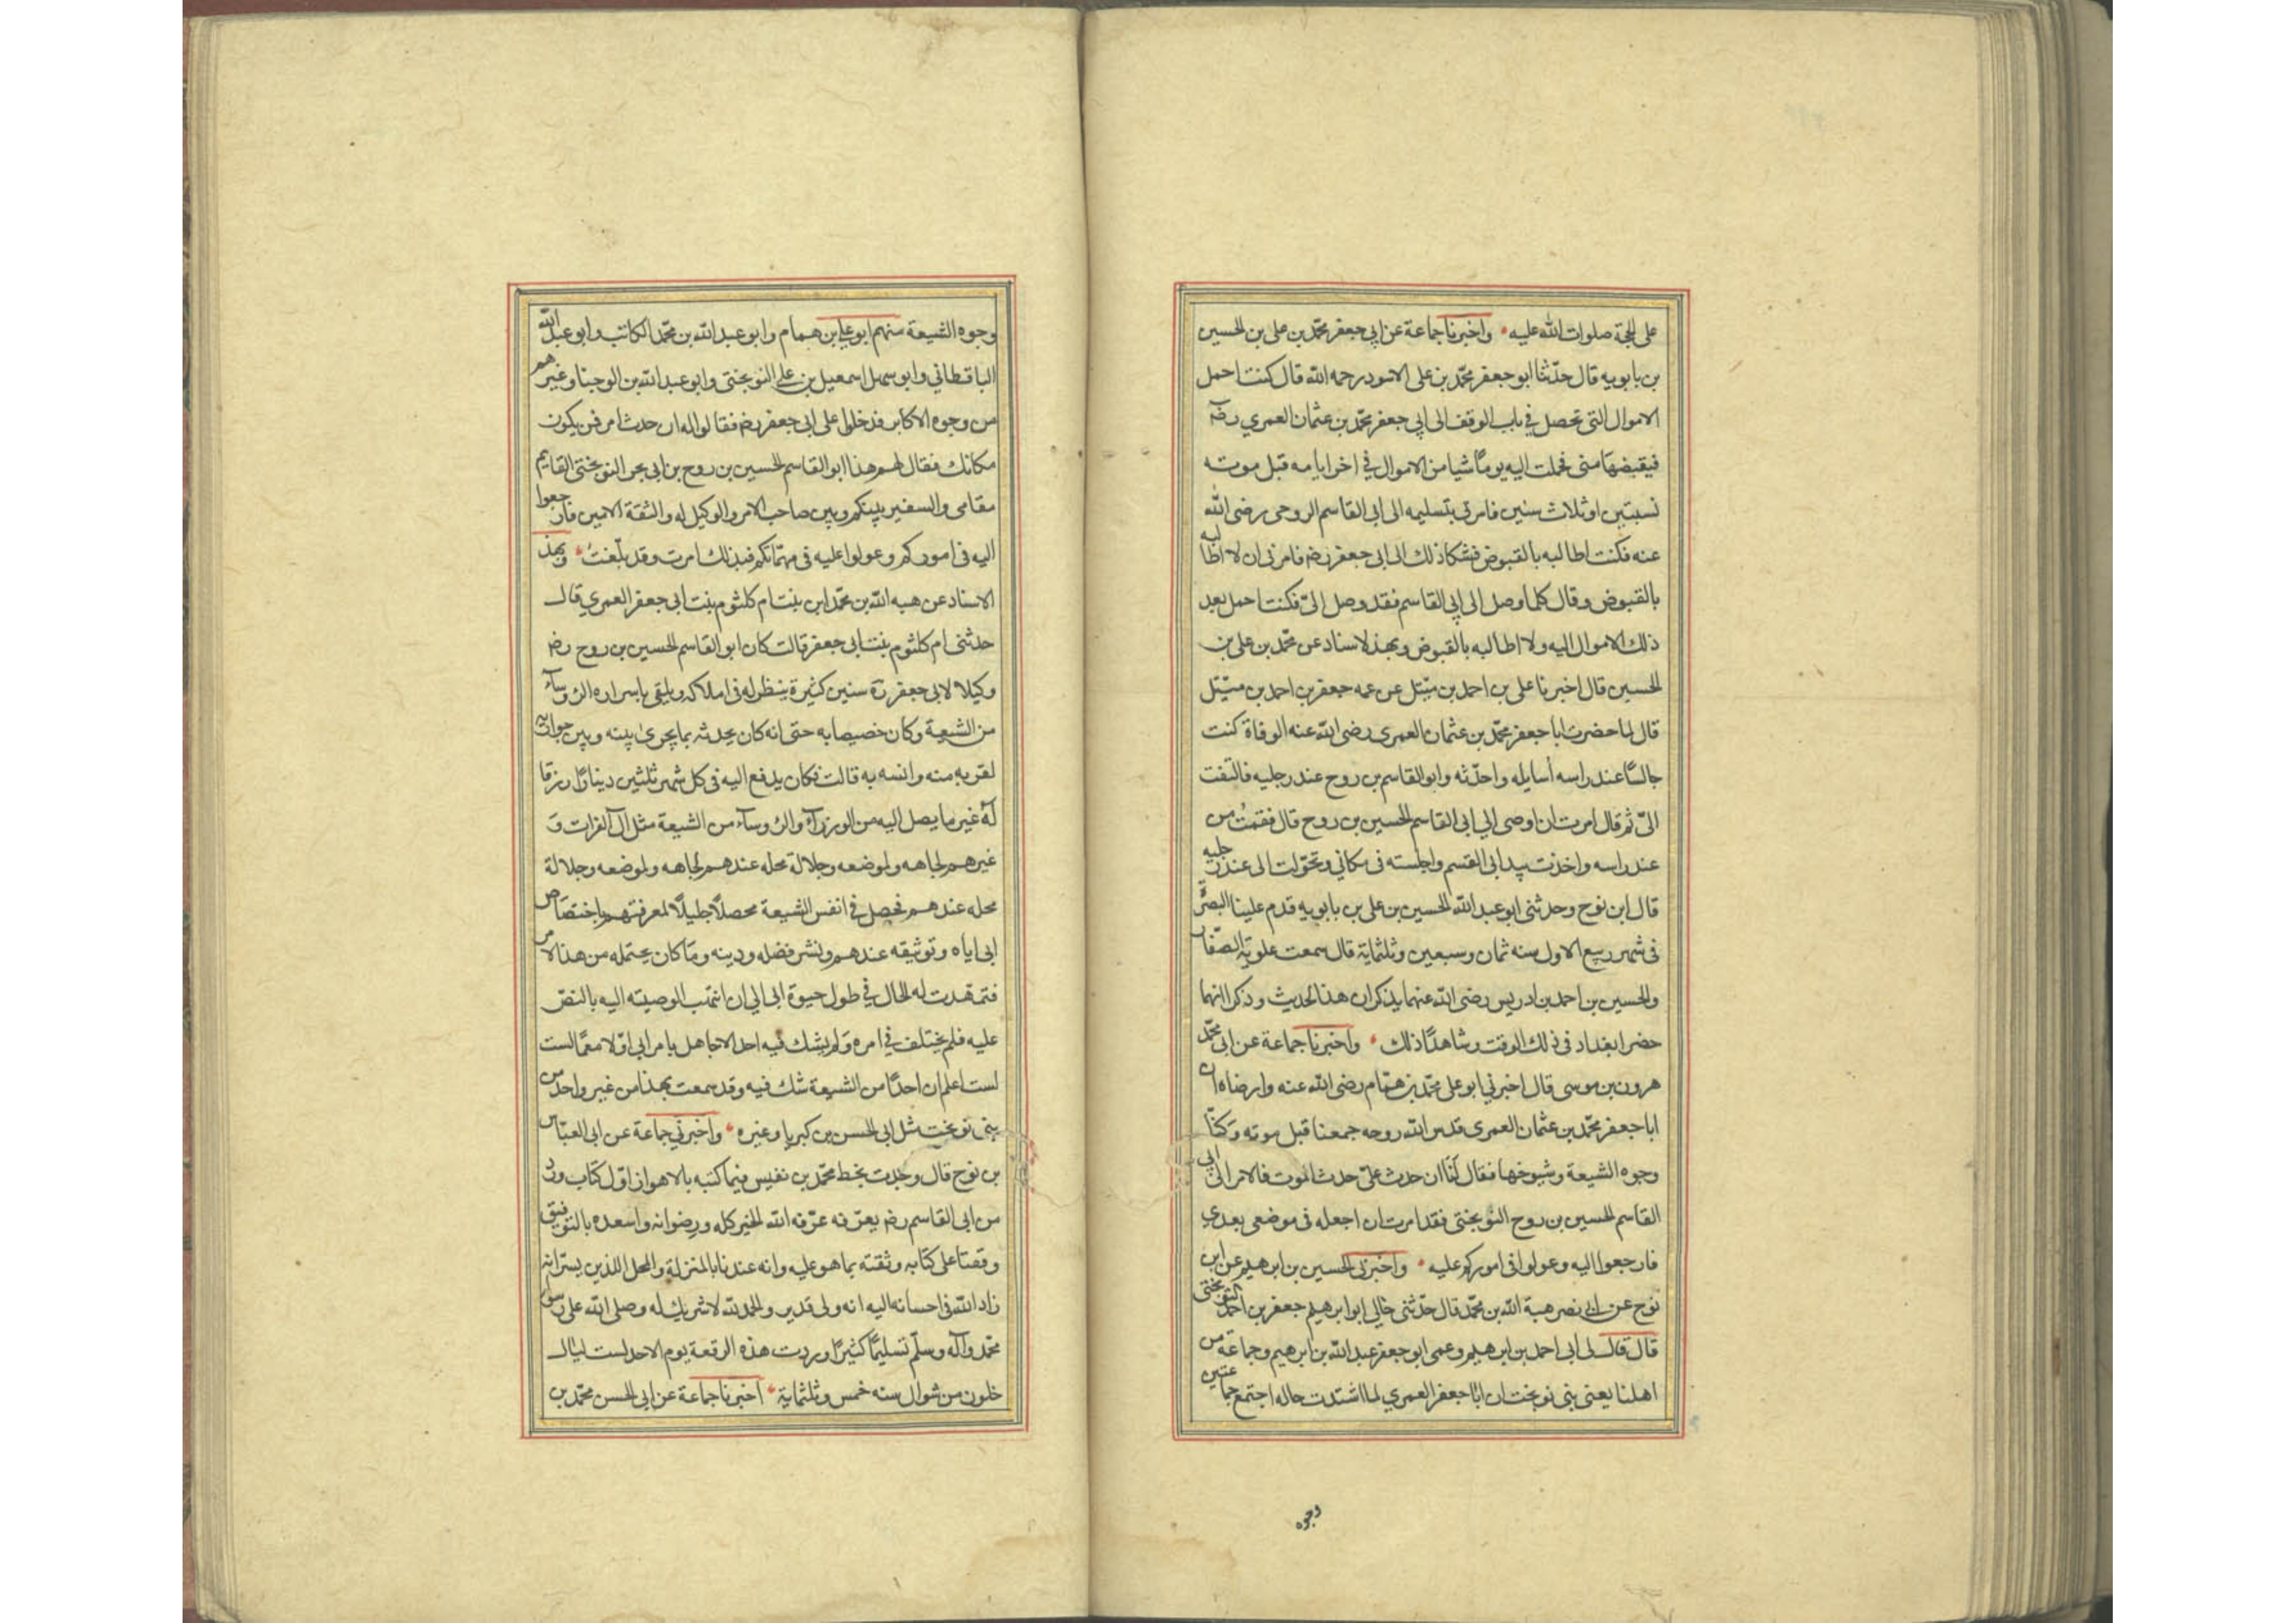 على الحجة صلوات الله عليه واخبرنا جماعة عن ابي جعفر محمد بن علي بن الحسين
بن بابويه قال حدّثنا ابو جعفر محمّد بن على الاسود رحمه الله قال كنت احمل
الاموال التى تحصل في باب الوقف الى ابي جعفر محمّد بن عثمان العمري رضه
فيقبضها منى فحملت اليه يوماً شيا من الاموال في اخر ايامه قبل موته
بسنتين او ثلاث سنين فامرنى بتسليمه الى ابى القاسم الروحى رضى الله
عنه فكنت اطالبه بالقبوض فشكا ذلك الى ابى جعفر رضه فامرنى ان لا اطالبه
بالقبوض وقال كلما وصل الى ابي القاسم فقد وصل الىّ فكنت احمل بعد
ذلك الاموال اليه ولا اطالبه بالقبوض وبهذ لاسناد عن محمّد بن على بن
الحسين قال اخبرنا على بن احمد بن متيل عن عمه جعفر بن احمد بن متيل
قال لما حضرت ابا جعفر محمّد بن عثمان العمرى رضى الله عنه الوفاة كنت
جالسًا عند راسه أسايله واحدّثه وابو القاسم بن روح عند رجليه فالتفت
الىّ ثم قال امرت ان اوصى الى ابى القاسم الحسين بن روح قال فقمتُ من
عند راسه واخذت بيد ابى القسم واجلسته فى مكاني وتحوّلت الى عند رجليه
قال ابن نوح وحدثنى ابو عبد الله الحسين بن على بن بابويه قدم علينا البصرة
فى شهر ربيع الاول سنه ثمان وسبعين وثلثماية قال سمعت علوية الصفّار
والحسين بن احمد بن ادريس رضى الله عنهما يذكران هذا الحديث وذكرا انهما
حضرا بغداد فى ذلك الوقت وشاهدًا ذلك واخبرنا جماعة عن ابى محمّد
هرون بن موسى قال اخبرني ابو على محمّد بن همّام رضى الله عنه وارضاه ان
ابا جعفر محمّد بن عثمان العمرى قدس الله روحه جمعنا قبل موته وكنّا
وجوه الشيعة وشيوخها فقال لنَا ان حدث علىّ حدث الموت فالامر الى ابى
القاسم الحسين بن روح النوبختى فقد امرت ان اجعله فى موضعى بعدي
فارجعوا اليه وعولوا فى اموركم عليه واخبرنى الحسين بن ابرهيم عن ابن
نوح عن ابى نصر هبة الله بن محمّد قال حدّثنى خالي ابو ابرهيم جعفر بن احمد النوبختى
قال قال لى ابى احمد بن ابرهيم وعمى ابو جعفر عبد الله بن ابرهيم وجماعة من
اهلنا يعنى بنى نوبخت ان ابا جعفر العمري لما اشتدت حاله اجتمع جماعة من
وجوه
وجوه الشيعة منهم ابو علي بن همام وابو عبد الله بن محمّد الكاتب وابو عبد الله
الباقطاني وابو سهل اسمعيل بن علي النوبختى وابو عبد الله بن الوجنا وغيرهم
من وجوه الاكابر فدخلوا على ابى جعفر رضه فقالوا له ان حدث امر فمن يكون
مكانك فقال لهم هذا ابو القاسم الحسين بن روح بن ابى بحر النوبختى القايم
مقامى والسفير بينكم وبين صاحب الامر والوكيل له والثقة الامين فارجعوا
اليه فى اموركم وعولوا عليه فى مهمّاتكم فبذلك امرت وقد بلّغتُ وبهذ
الاسناد عن هبه الله بن محمّد ابن بنت ام كلثوم بنت ابى جعفر العمري قال
حدثتنى ام كلثوم بنت ابى جعفر قالت كان ابو القاسم الحسين بن روح رضه
وكيلا لابى جعفر ره سنين كثيرة ينظر له فى املاكه ويلقى باسراره الروساء
من الشيعة وكان خصيصا به حتى انه كان يحدثه بما يجرى بينه وبين جواريه
لقربه منه وانسه به قالت فكان يدفع اليه فى كل شهر ثلثين دينارًا رزقا
لهُ غير ما يصل اليه من الوزراء والروساء من الشيعة مثل ال الفرات وَ
غيرهم لجاهه ولموضعه وجلالة محله عندهم لجاهه ولموضعه وجلالة
محله عندهم فحصل في انفس الشيعة محصلاً جليلاً لمعرفتهم باختصاص
ابى اياه وتوثيقه عندهم ونشر فضله ودينه وما كان يحتمله من هذا الامر
فتمهّدت له الحال في طول حيوة ابى الى ان انتهت الوصيته اليه بالنصّ
عليه فلم يختلف في امره وَلم يشك فيه احد الا جاهل بامر ابى اوّلا معمّا لست
لست اعلم ان احدًا من الشيعة شك فيه وقد سمعت بهذا من غير واحد من
بنى نوبخت مثل ابى الحسن بن كبريا وغيره واخبرني جماعة عن ابى العبّاس
بن نوح قال وجدت بخط محمّد بن نفيس فيما كتبه بالاهواز اوّل كتاب ورد
من ابى القاسم رضه يعرّفه عرّفه الله الخير كله ورضوانه واسعده بالتوفيق
وقفنا على كتابه وثقته بما هو عليه وانه عندنا بالمنزلة والمحل اللذين يسّرانه
زاد الله فى احسانه اليه انه ولى قدير والحمد لله لا شريك له وصلى الله على رسوله
محمّد وآله وسلّم تسليمًا كثيرًا وردت هذه الرقعة يوم الاحد لست ليال
خلون من شوال سنه خمس وثلثماية اخبرنا جماعة عن ابي الحسن محمّد بن